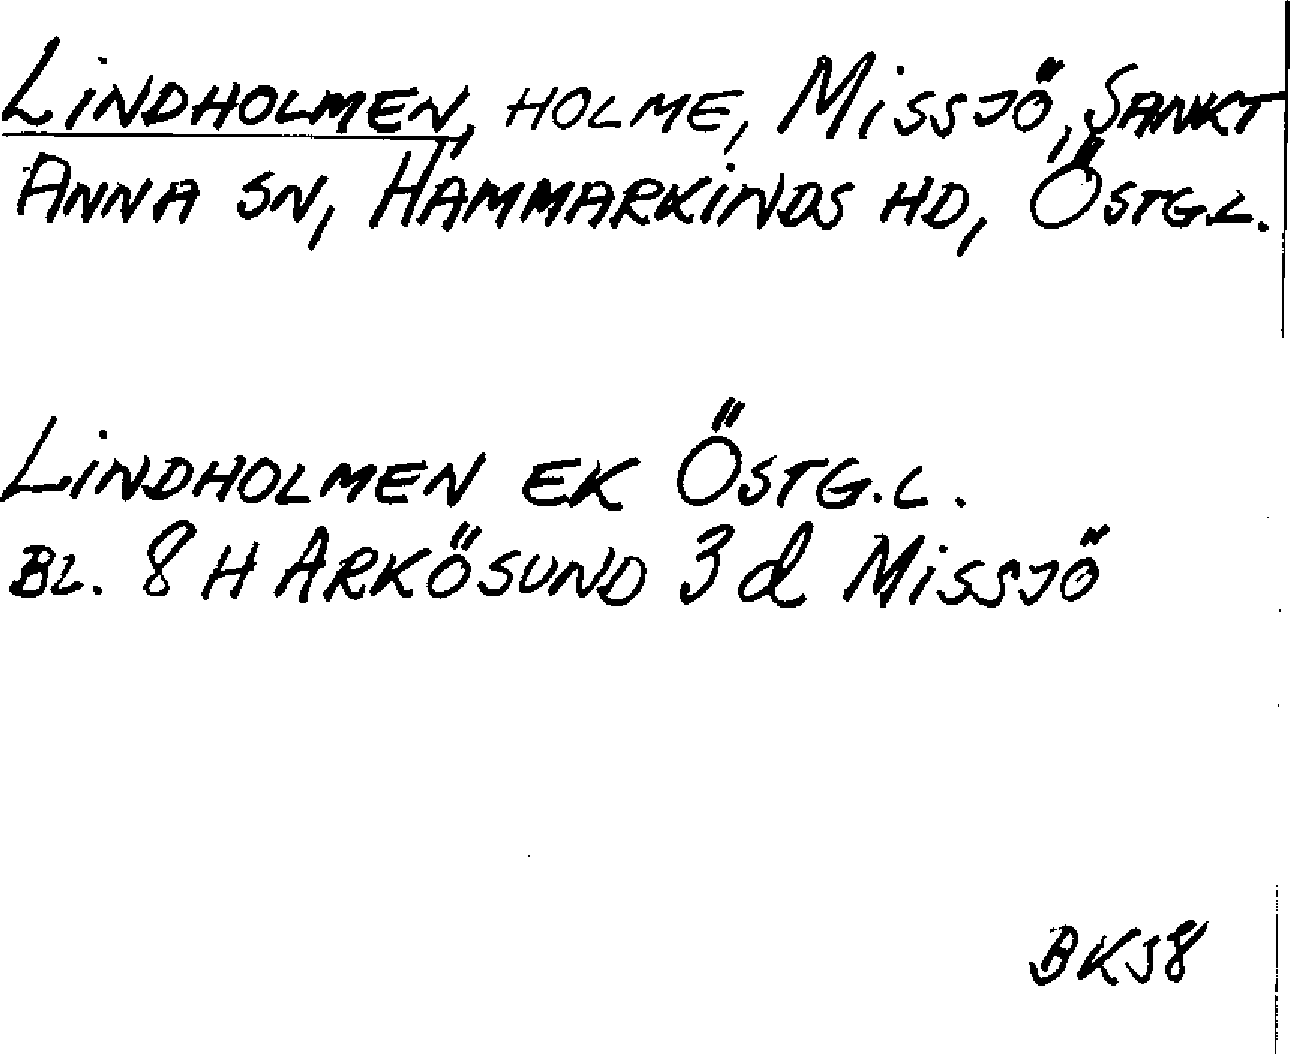 LINDHOLMEN, HOLME, MISSJÖ, SANKT
ANNA SN, HAMMARKINDS HD, ÖSTG.L.
LINDHOLMEN EK ÖSTG.L.
BL. 8 H ARKÖSUND 3 d MISSJÖ
BKJ8